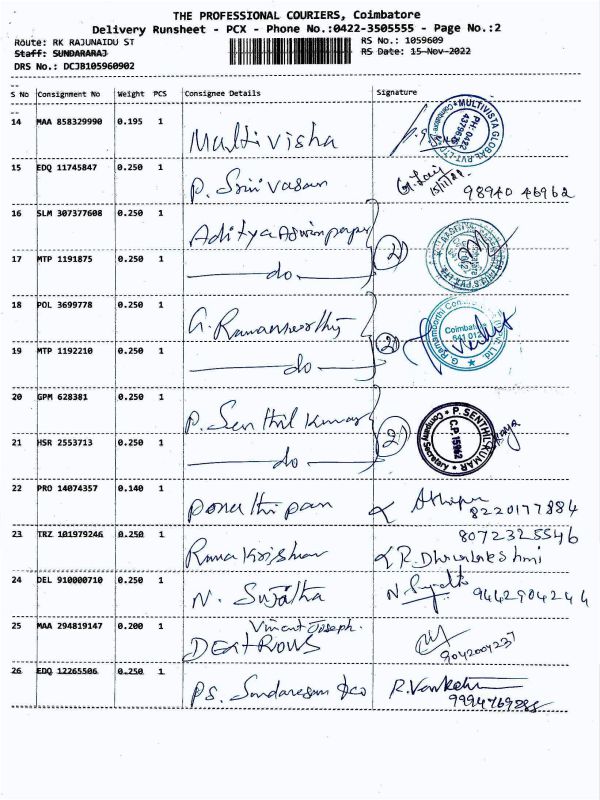 THE PROFESSIONAL COURIERS, Coimbatore
Delivery Runsheet - PCX - Phone No.:0422-3505555 - Page No.:2
Route: RK RAJUNAIDU ST RS No.: 1059609
Staff: SUNDARARAJ RS Date: 15-Nov-2022
DRS No.: DCJB105960902
S No Consignment No Weight PCS Consignee Details Signature
14 MAA 858329990 0.195 1 Multivisha
MULTIVISTA GLOBAL PVT. LTD Coimbatore PH: 0422
15 EDQ 11745847 0.250 1 P. Srinivasan 15/11/22 98940 46962
16 SLM 307377608 0.250 1 Aditya Aswin paper
17 MTP 1191875 0.250 1 do (2)
18 POL 3699778 0.250 1 G. Ramamoorthy
Coimbatore 641 012 Pvt. Ltd
19 MTP 1192210 0.250 1 do (2)
20 GPM 628381 0.250 1 P. Senthil Kumar
P. SENTHILKUMAR Company Secretary C.P 15962
21 HSR 2553713 0.250 1 do (2)
22 PRO 14074357 0.140 1 Ponuthipan 8220177884
23 TRZ 101979246 0.250 1 Rama Krishnan 8072325546
R. Dhanalakshmi
24 DEL 910000710 0.250 1 N. Sujatha N. Sujatha 9442904244
25 MAA 294819147 0.200 1 Vincent Joseph.
DEXTROUS 9042004237
26 EDQ 12265506 0.250 1 Ps. Sundaresan &co R. Venkat
9994769286